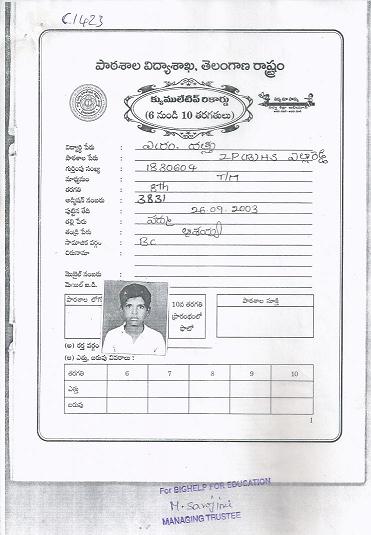 C1423
పాఠశాల విద్యాశాఖ, తెలంగాణ రాష్ట్రం
క్యుములేటివ్ రికార్డు
(6 నుండి 10 తరగతులు)
విద్యార్థి పేరు :
పాఠశాల పేరు : ZP(B)HS
గుర్తింపు సంఖ్య : 1830604
మాధ్యమం : T/M
తరగతి : 8th
అడ్మిషన్ నంబరు : 3831
పుట్టిన తేది : 26.09.2003
తల్లి పేరు : పద్మ
తండ్రి పేరు :
సామాజిక వర్గం : BC
చిరునామా :
మొబైల్ నంబరు :
మెయిల్ ఐ.డి. :
పాఠశాల లోగో
10వ తరగతి
ప్రారంభంలో
ఫొటో
పాఠశాల స్ఫూర్తి
(అ) రక్త వర్గం
(ఆ) ఎత్తు, బరువు వివరాలు :
తరగతి 6 7 8 9 10
ఎత్తు
బరువు
1
For BIGHELP FOR EDUCATION
M. Sarojini
MANAGING TRUSTEE